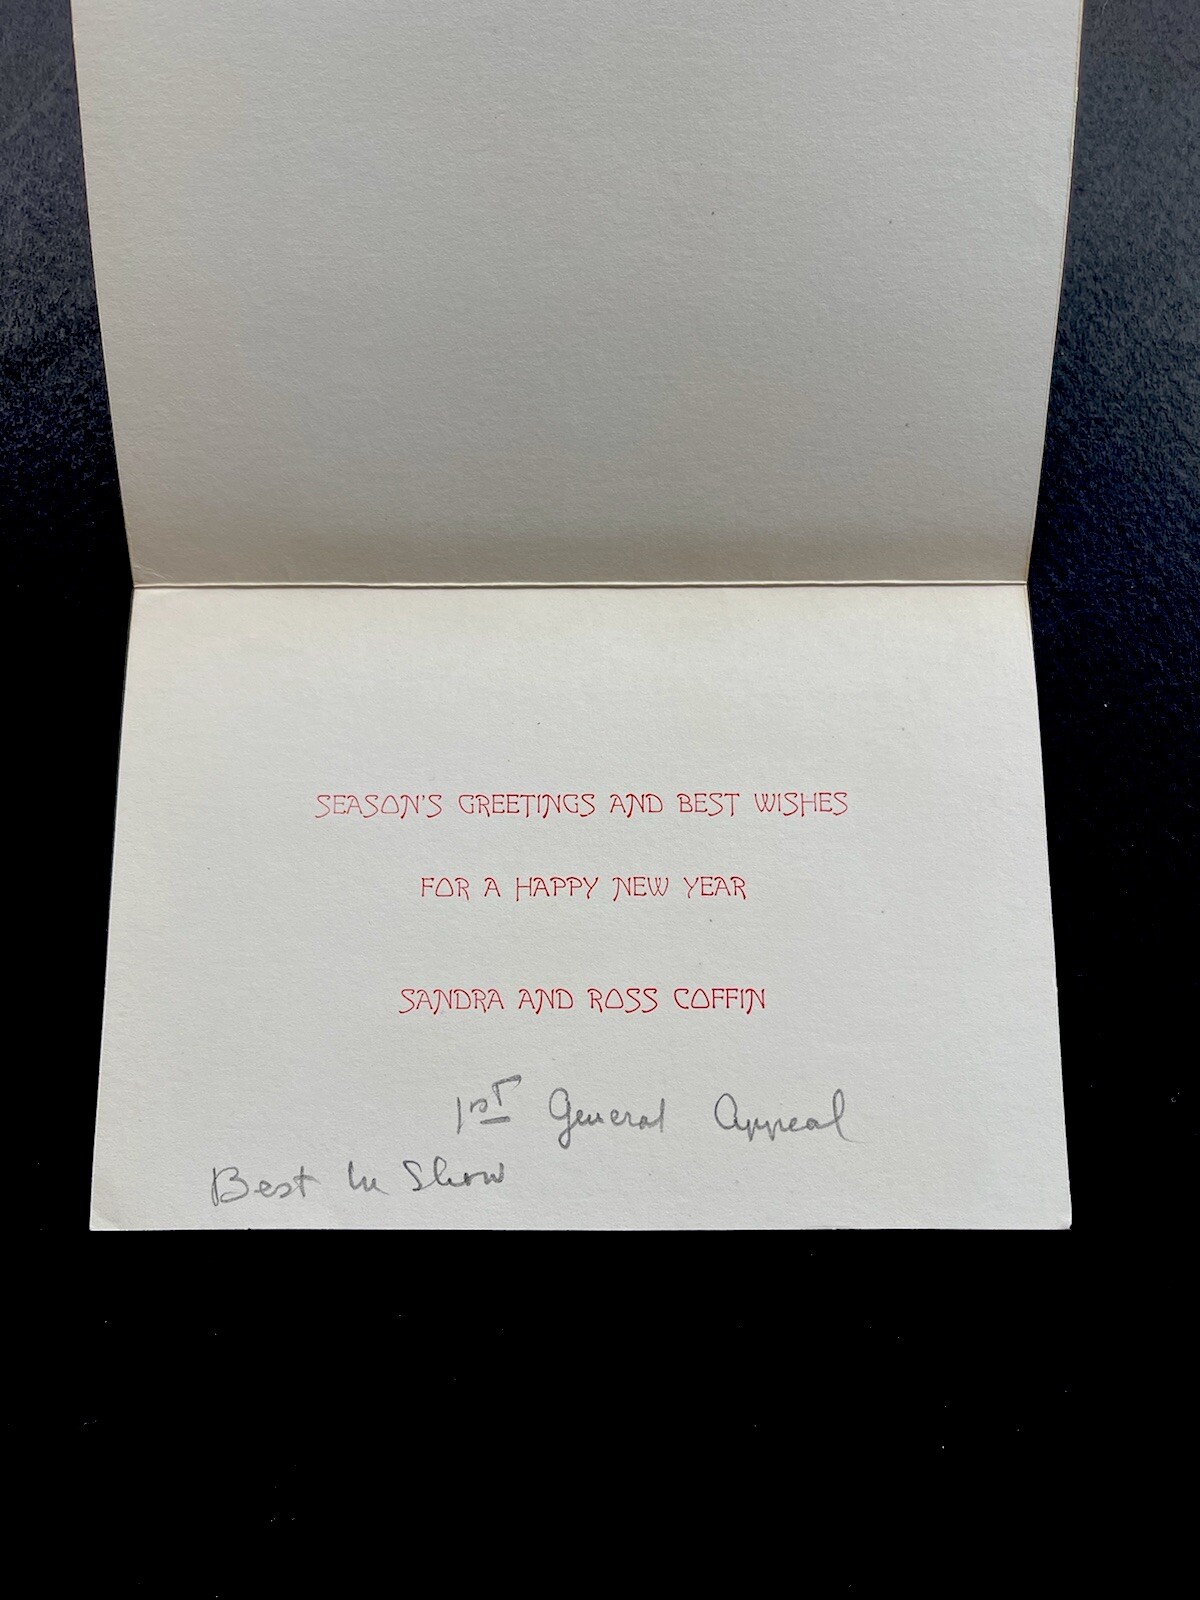 SEASON'S GREETINGS AND BEST WISHES
FOR A HAPPY NEW YEAR
SANDRA AND ROSS COFFIN
1st General Appeal
Best In Show